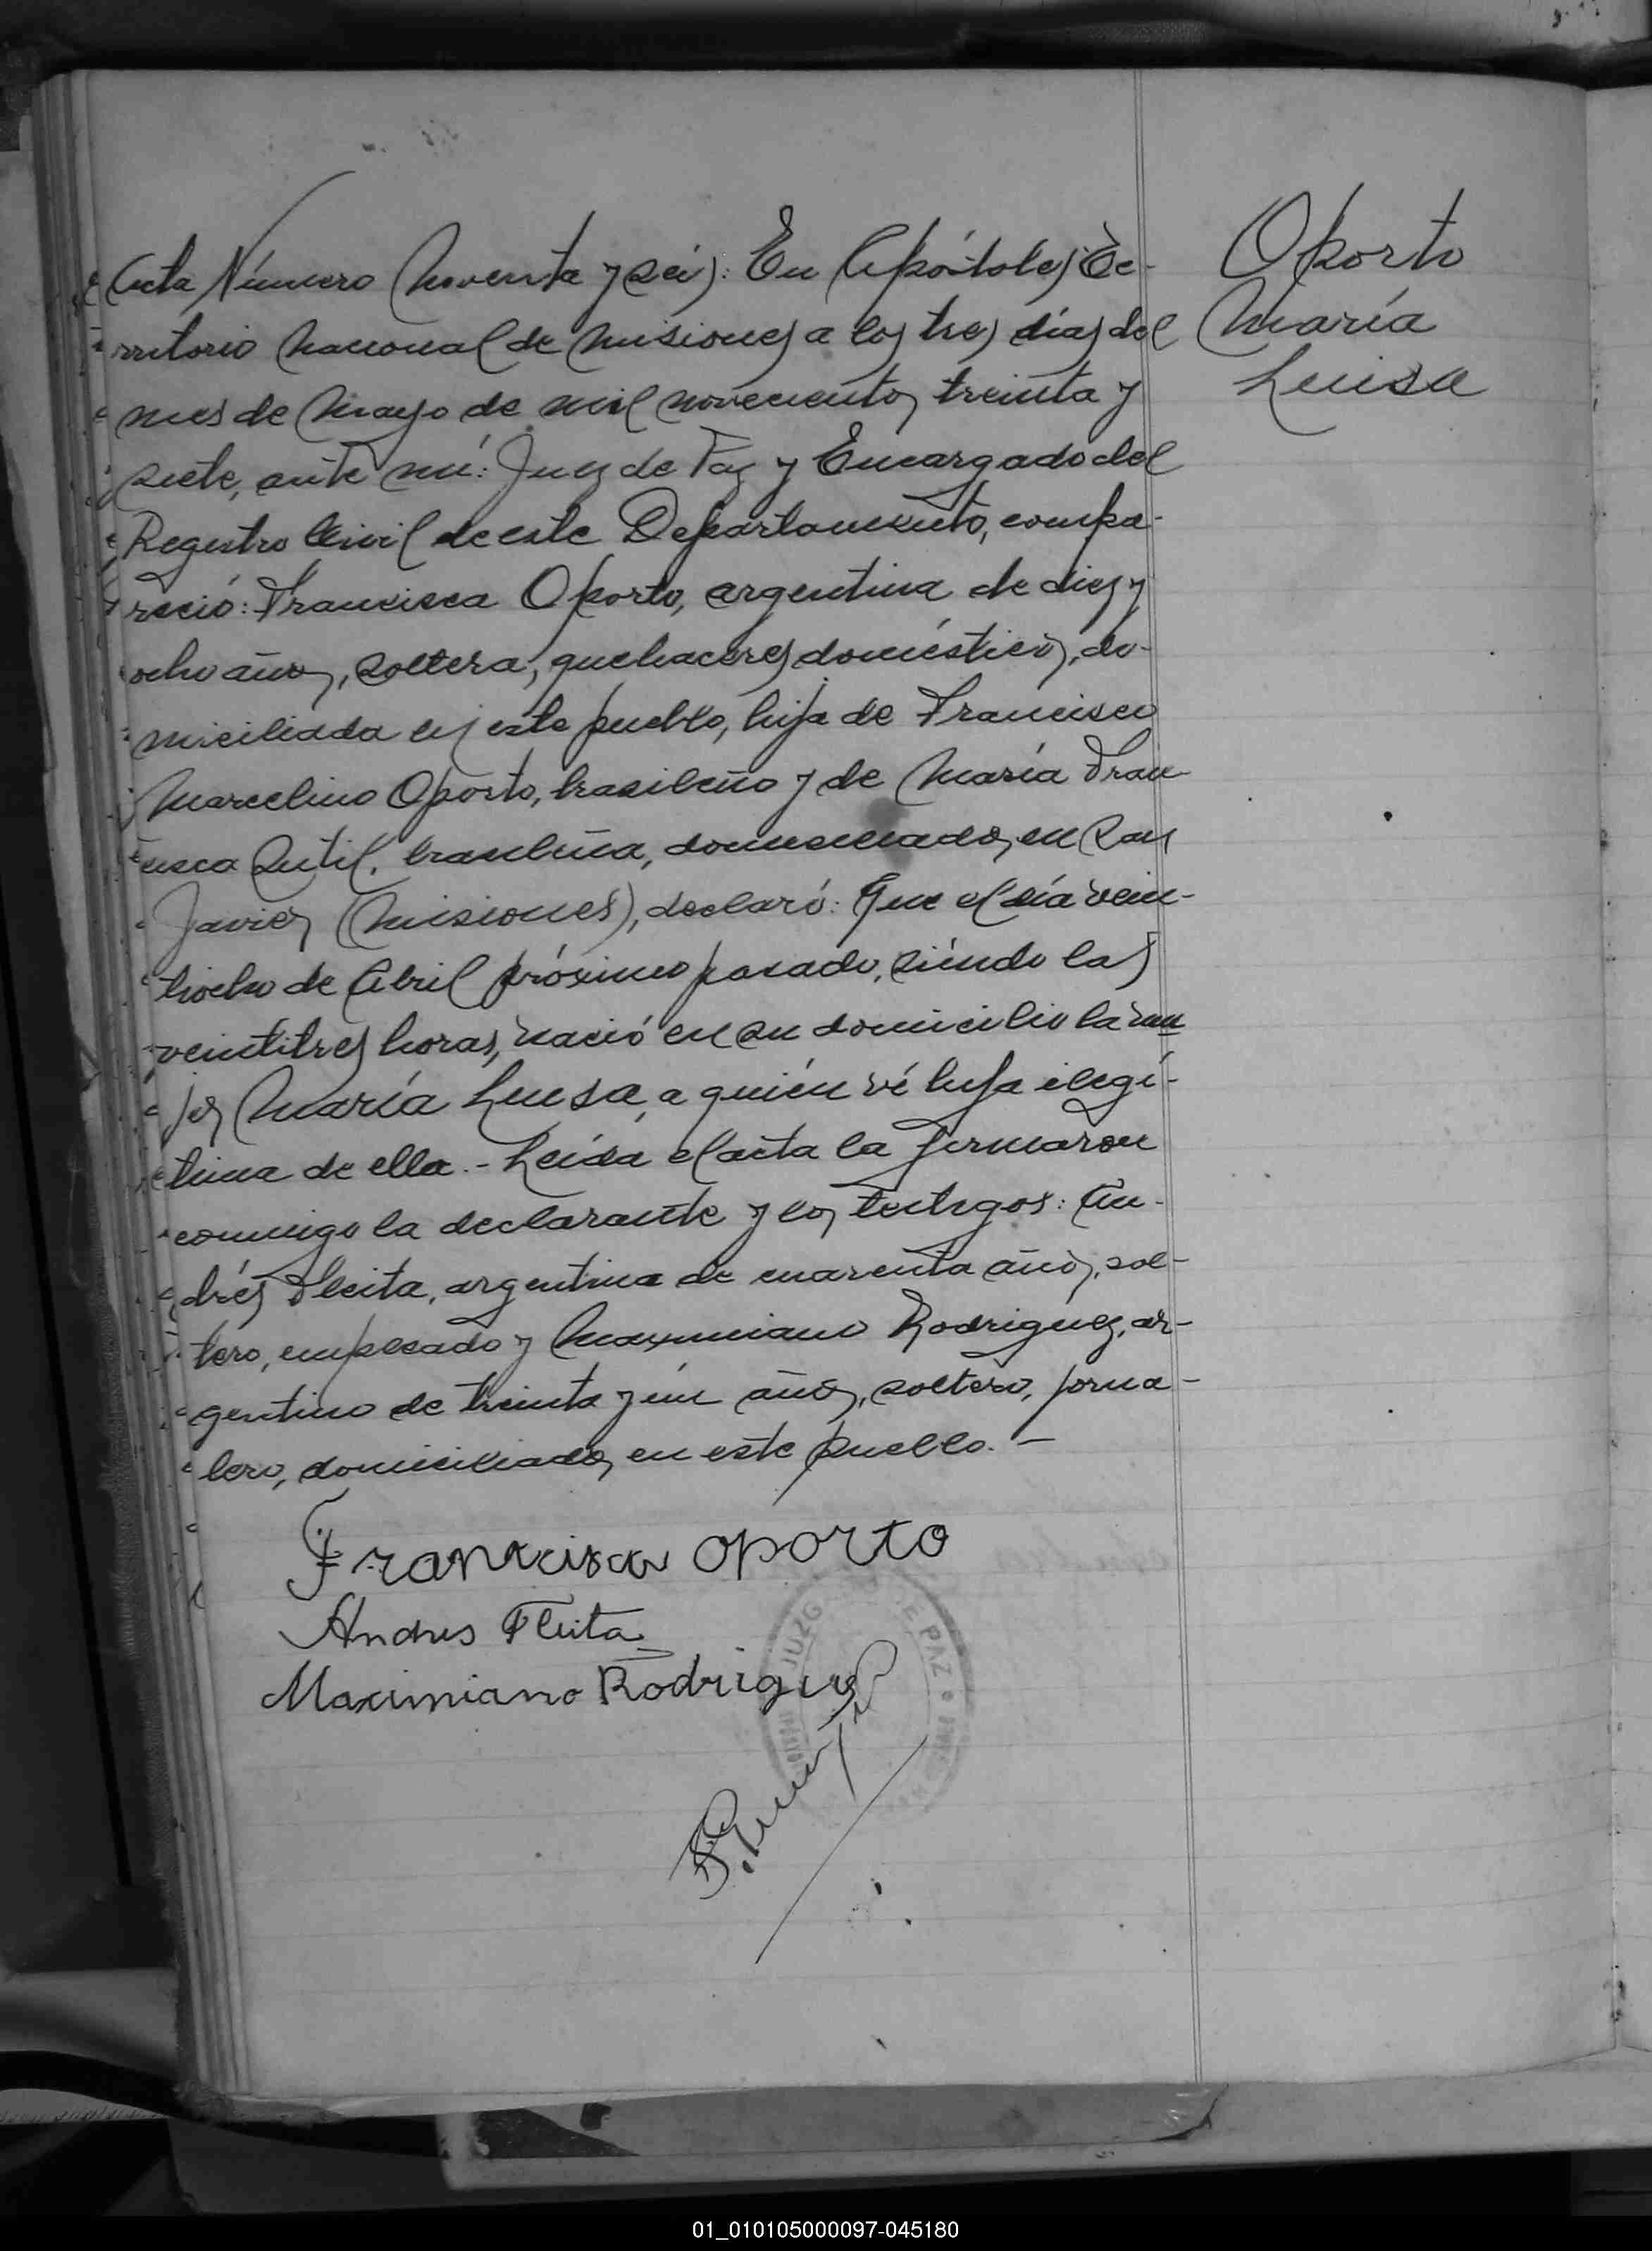 Acta Número Noventa y seis: En Apóstoles Te-
rritorio Nacional de Misiones a los tres días del
mes de Mayo de mil novecientos treinta y
siete, ante mí: Juez de Paz y Encargado del
Registro Civil de este Departamento, compa-
reció: Francisca Oporto, argentina de diez y
ocho años, soltera, quehaceres domésticos, do-
miciliada en este pueblo, hija de Francisco
Marcelino Oporto, brasileño y de María Fran
cisca Sutil, brasileña, domiciliados en San
Javier (Misiones), declaró: Que el día vein-
tiocho de Abril próximo pasado, siéndo las
veintitres horas, nació en su domicilio la mu
jer María Luisa, a quién vé hija ilegí-
tima de ella.- Leída el acta la firmaron
conmigo la declarante y los testigos: An-
drés Fleita, argentino de cuarenta años, sol-
tero, empleado y Maximiano Rodriguez, ar-
gentino de treinta y ún años, soltero, jorna-
lero, domiciliados en este pueblo.-
Oporto
María
Luisa
Francisca Oporto
Andres Fleita
Maximiano Rodriguez
JUZG E PAZ
01_010105000097-045180